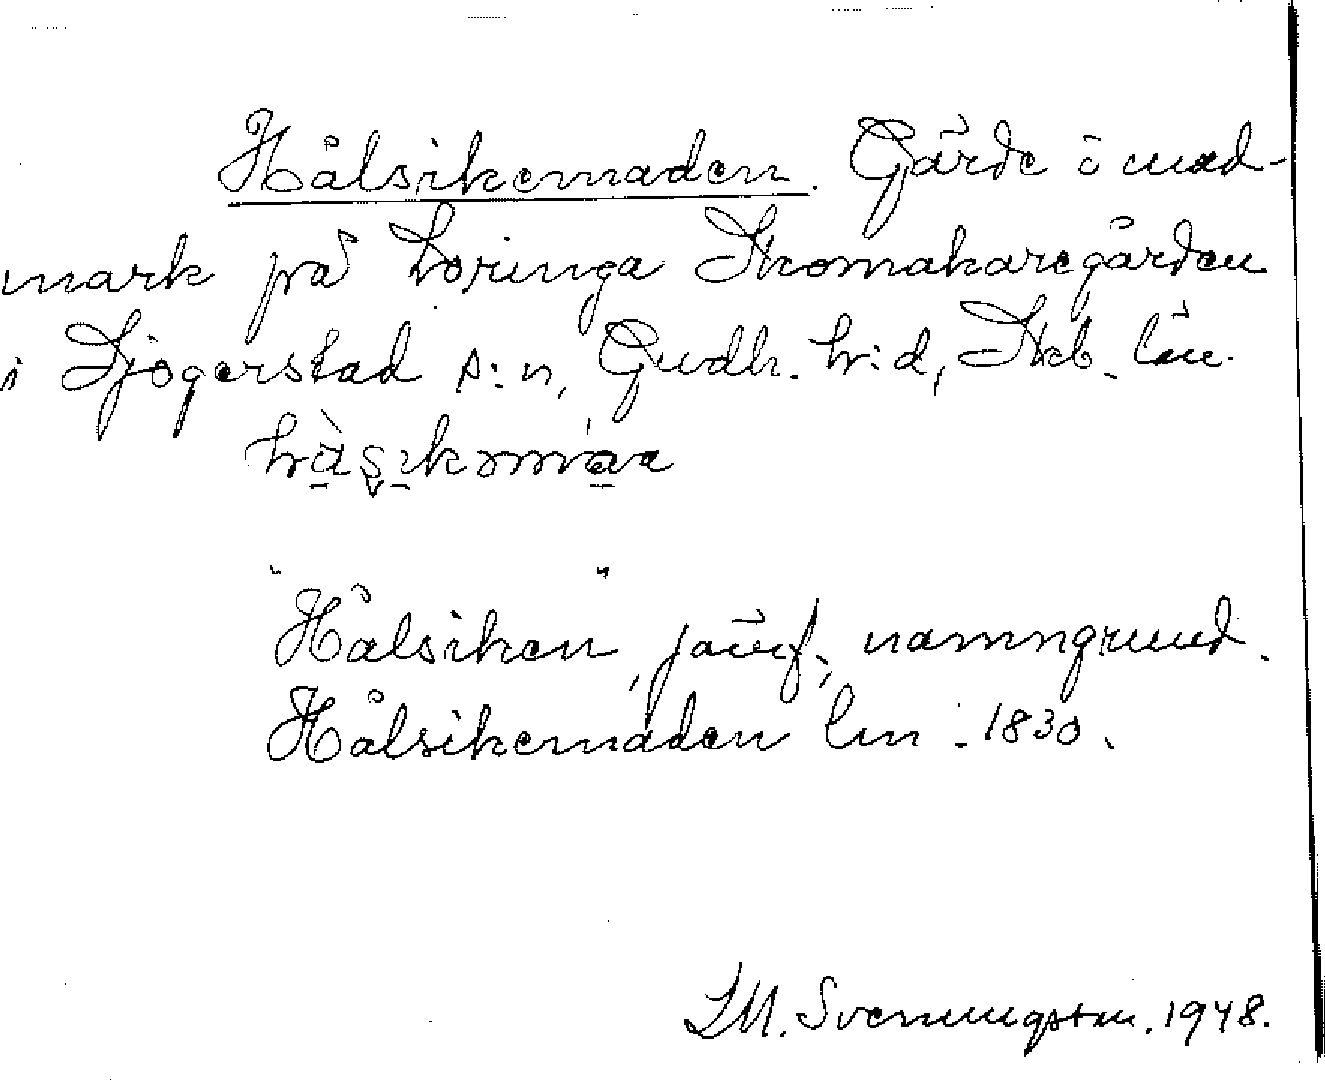 Hålsikemaden. Gärde ö mad-
mark på Loringa Skomakaregården
i Sjogerstad s:n, Gudh. h:d, Skb. län.
"Hålsiken", jämf. namngrund.
Hålsikemaden lm. 1830.
LM. Svenungsson. 1948.